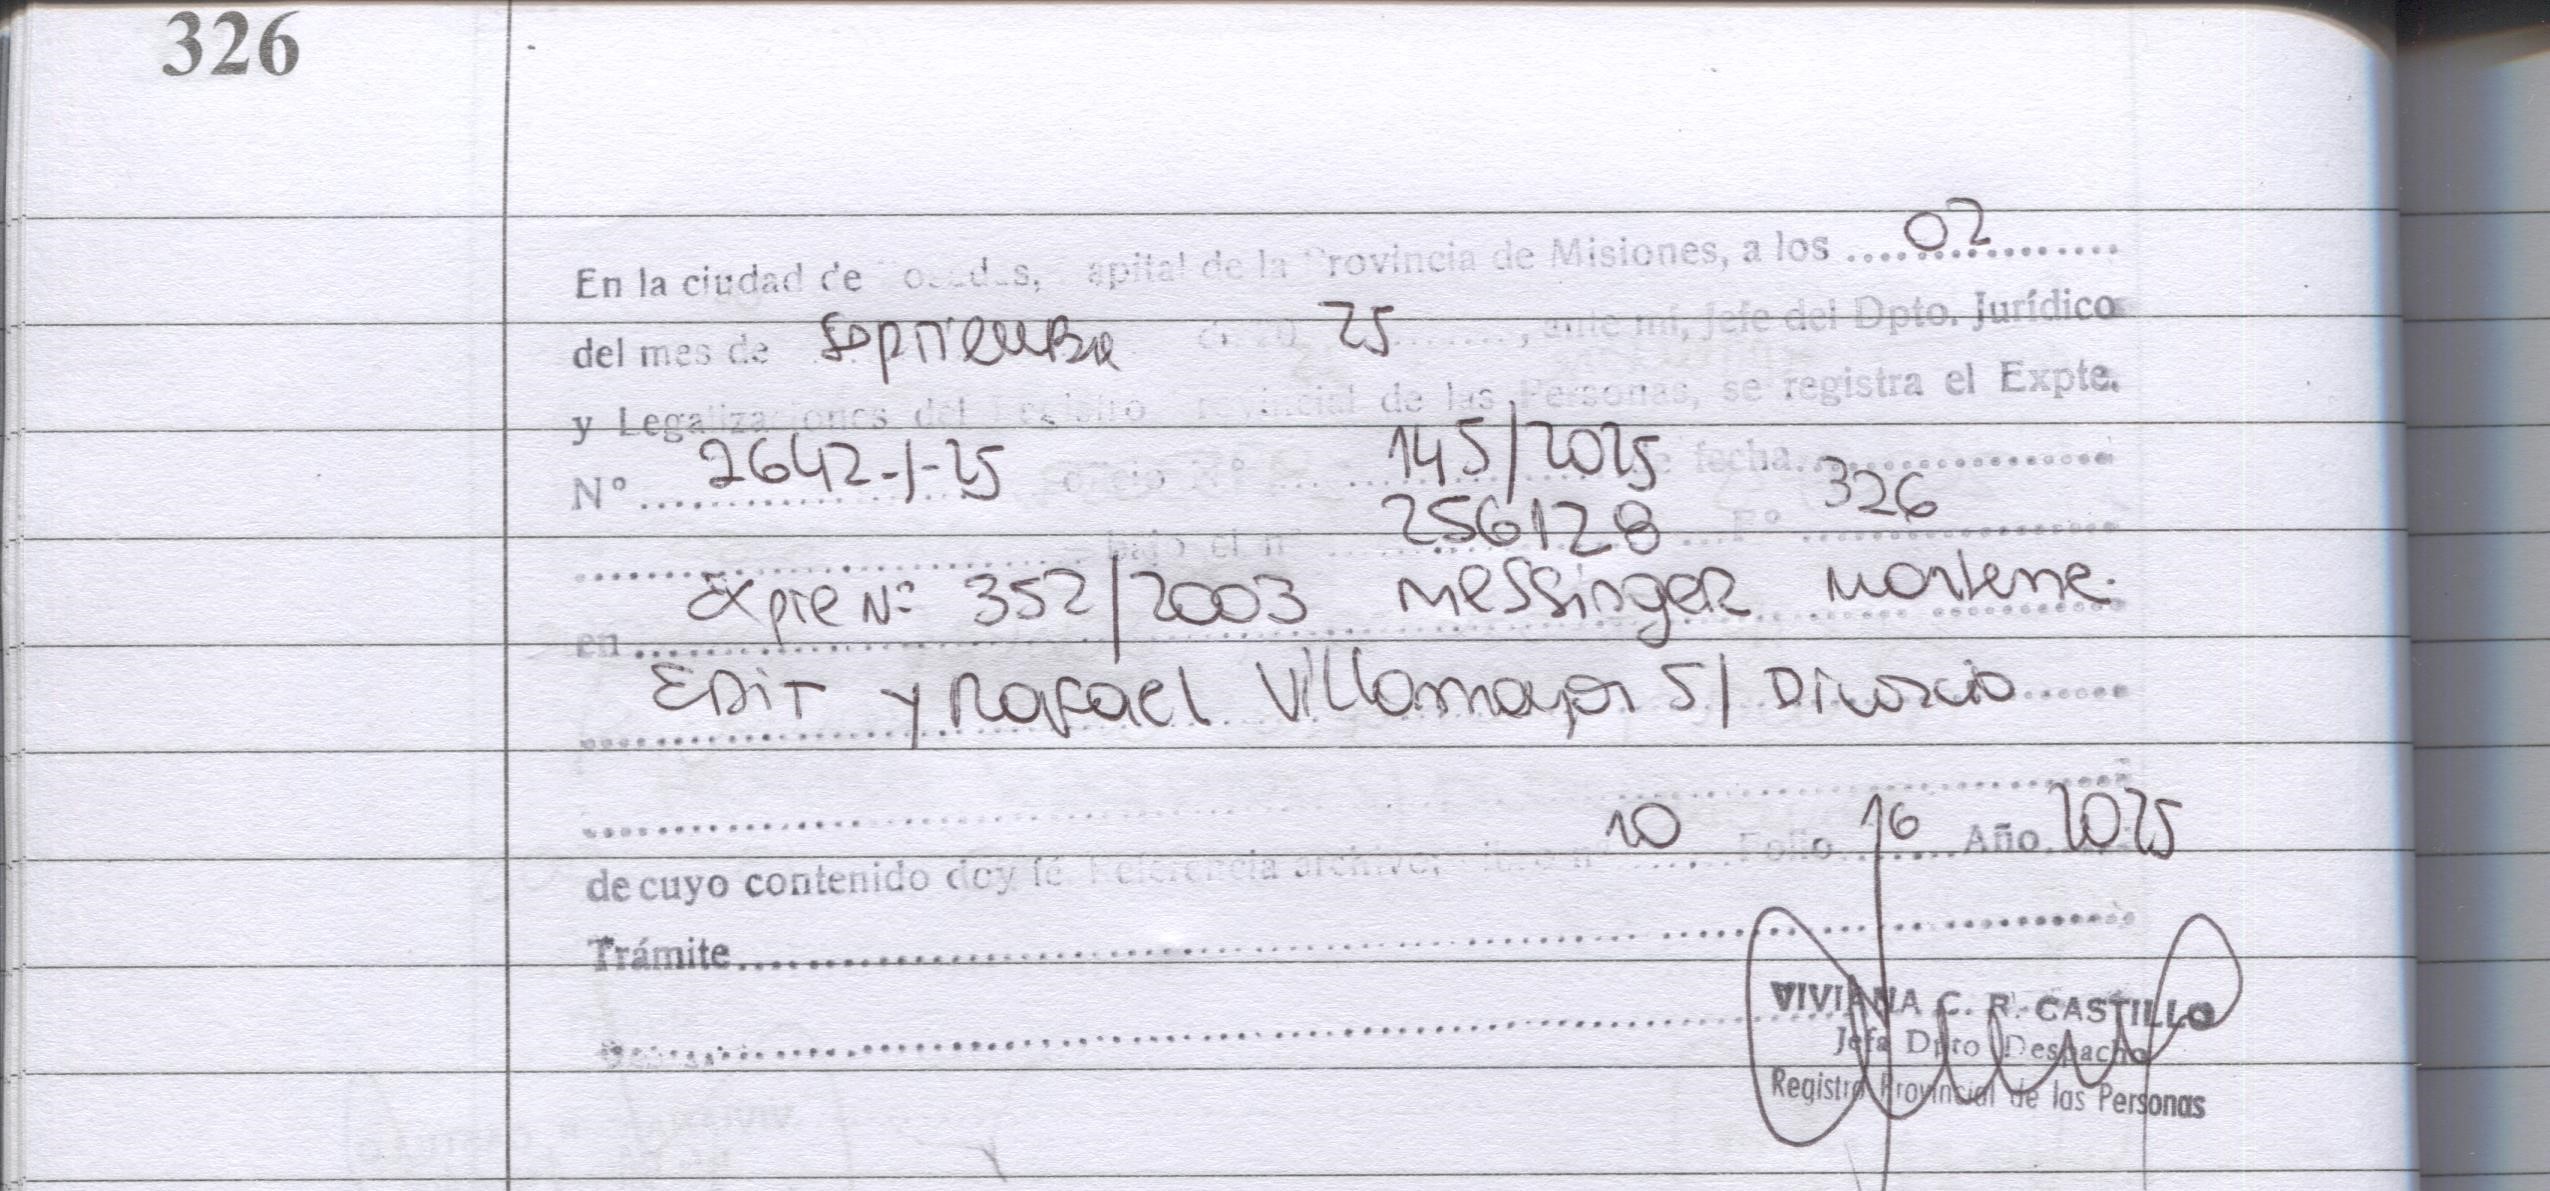 326
En la ciudad de Posadas, Capital de la Provincia de Misiones, a los 02
del mes de Septiembre de 20 25, ante mí, Jefe del Dpto. Jurídico
y Legalizaciones del Registro Provincial de las Personas, se registra el Expte.
N° 2642-J-25 oficio N° 145/2025 de fecha.
bajo el n° 256128 F° 326
en Expte N° 352/2003 Messinger Marlene.
Edit y Rafael Villamayor S/ Divorcio
de cuyo contenido doy fé. Referencia archivo: libro n° 10 Folio 16 Año 2025
Trámite
VIVIANA C. R. CASTILLO
Jefa Dpto Despacho
Registro Provincial de las Personas